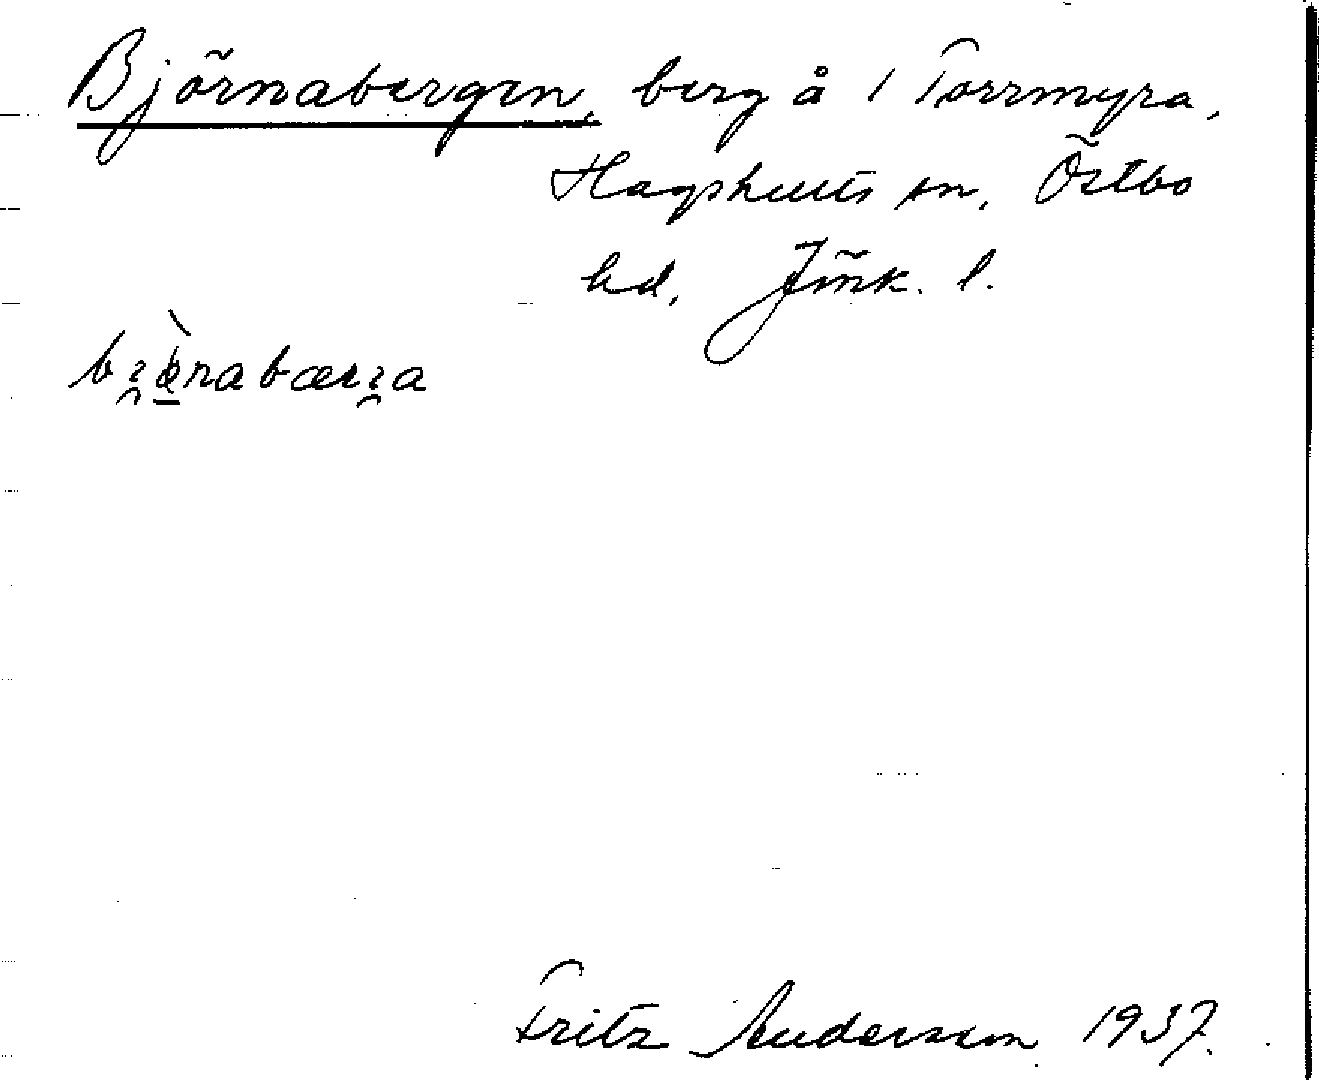 Björnabergen, berg å 1 Torrmyra,
Hagshults sn, Östbo
hd, Jönk. l.
Fritz Andersson 1937.